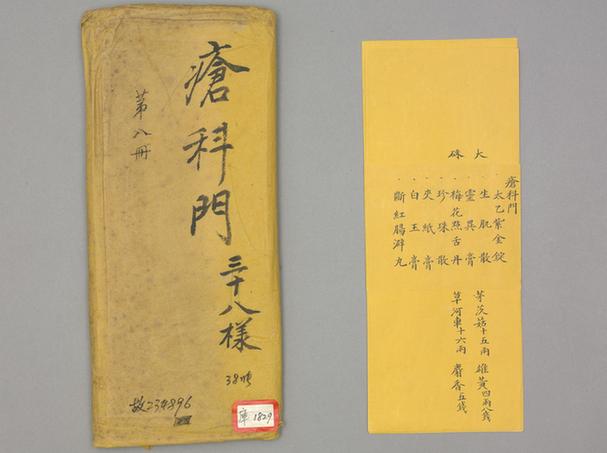 瘡科門三十八樣
第八冊
38啨
故234896
庫1829
大 硃
瘡科門
太乙紫金錠
生肌散
靈異膏
梅花點舌丹
珍珠散
夾紙膏
白玉膏
斷紅腸澼丸
茅茨菇十五兩 雄黃四兩八錢
草河車十六兩 麝香五錢